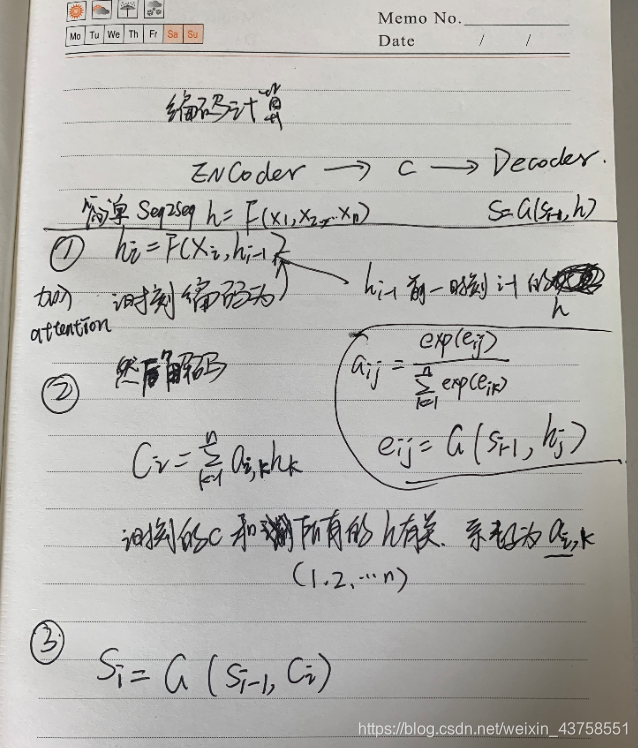 Memo No.
Mo Tu We Th Fr Sa Su
Date / /
编码计算
ENCoder → C → Decoder.
简单 Seq2Seq h = F(x1, x2, ... xn) S=G(Si-1, h)
① hi = F(xi, hi-1)
加入 attention
i时刻编码为
hi-1 前一时刻 i-1 的 h
② 然后解码
aij = exp(eij) / Σ k=1 n exp(eik)
eij = G(Si-1, hj)
Ci = Σ k=1 n ai,k hk
i时刻的C和所有的h有关. 系数为 ai,k
(1.2, ...n)
③ Si = G(Si-1, Ci)
https://blog.csdn.net/weixin_43758551